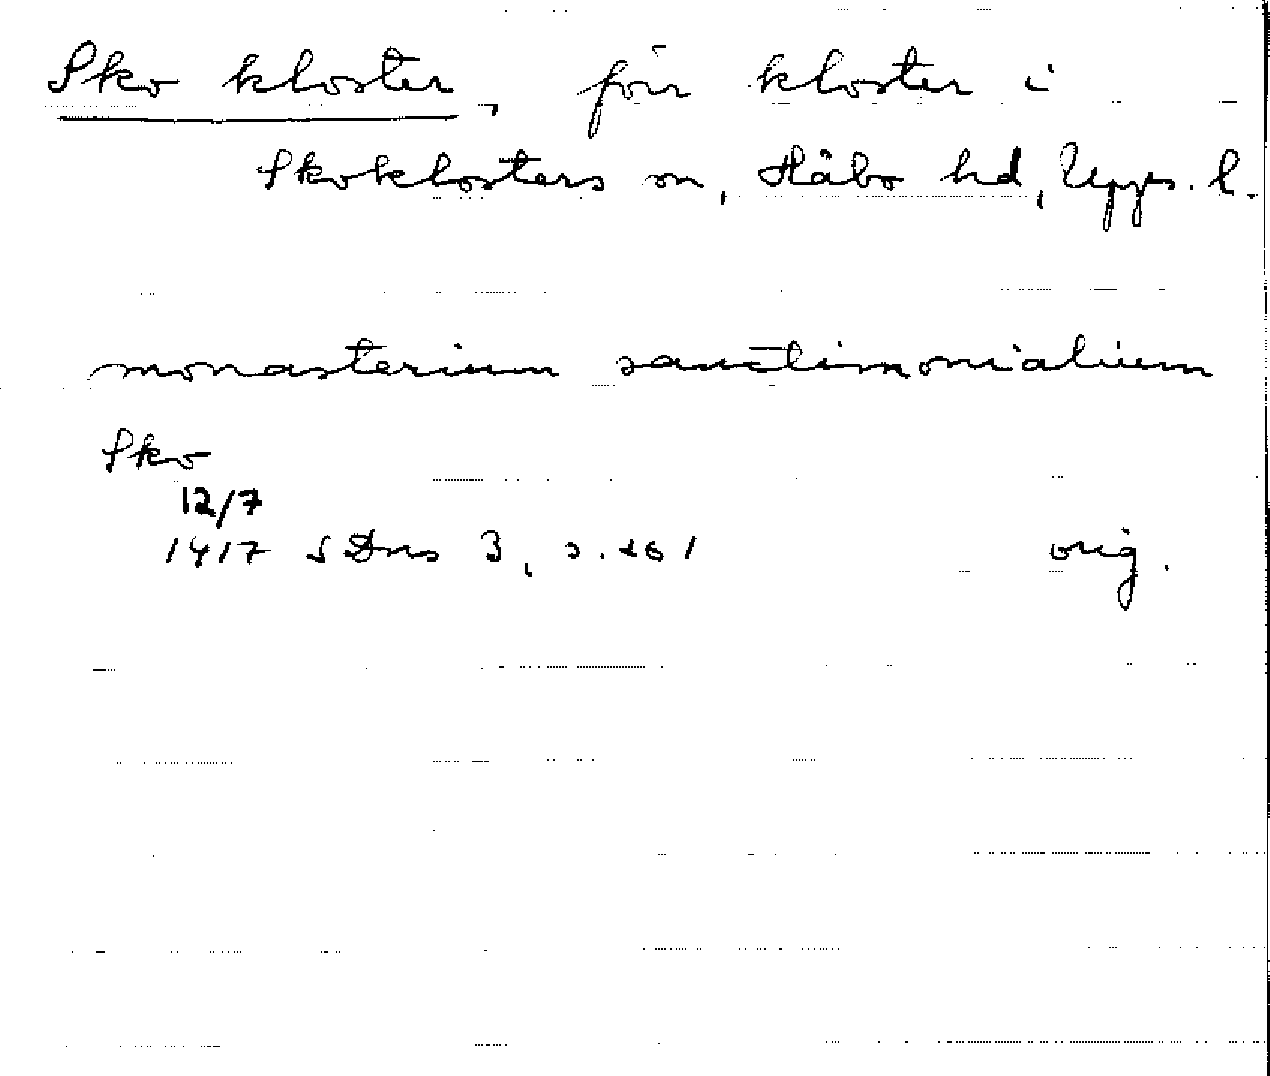 Sko kloster, förr kloster i
Skoklosters sn, Håbo hd, Upps. l.
monasterium sanctimonialium
Sko
12/7
1417 SDns 3, s. 261
orig.